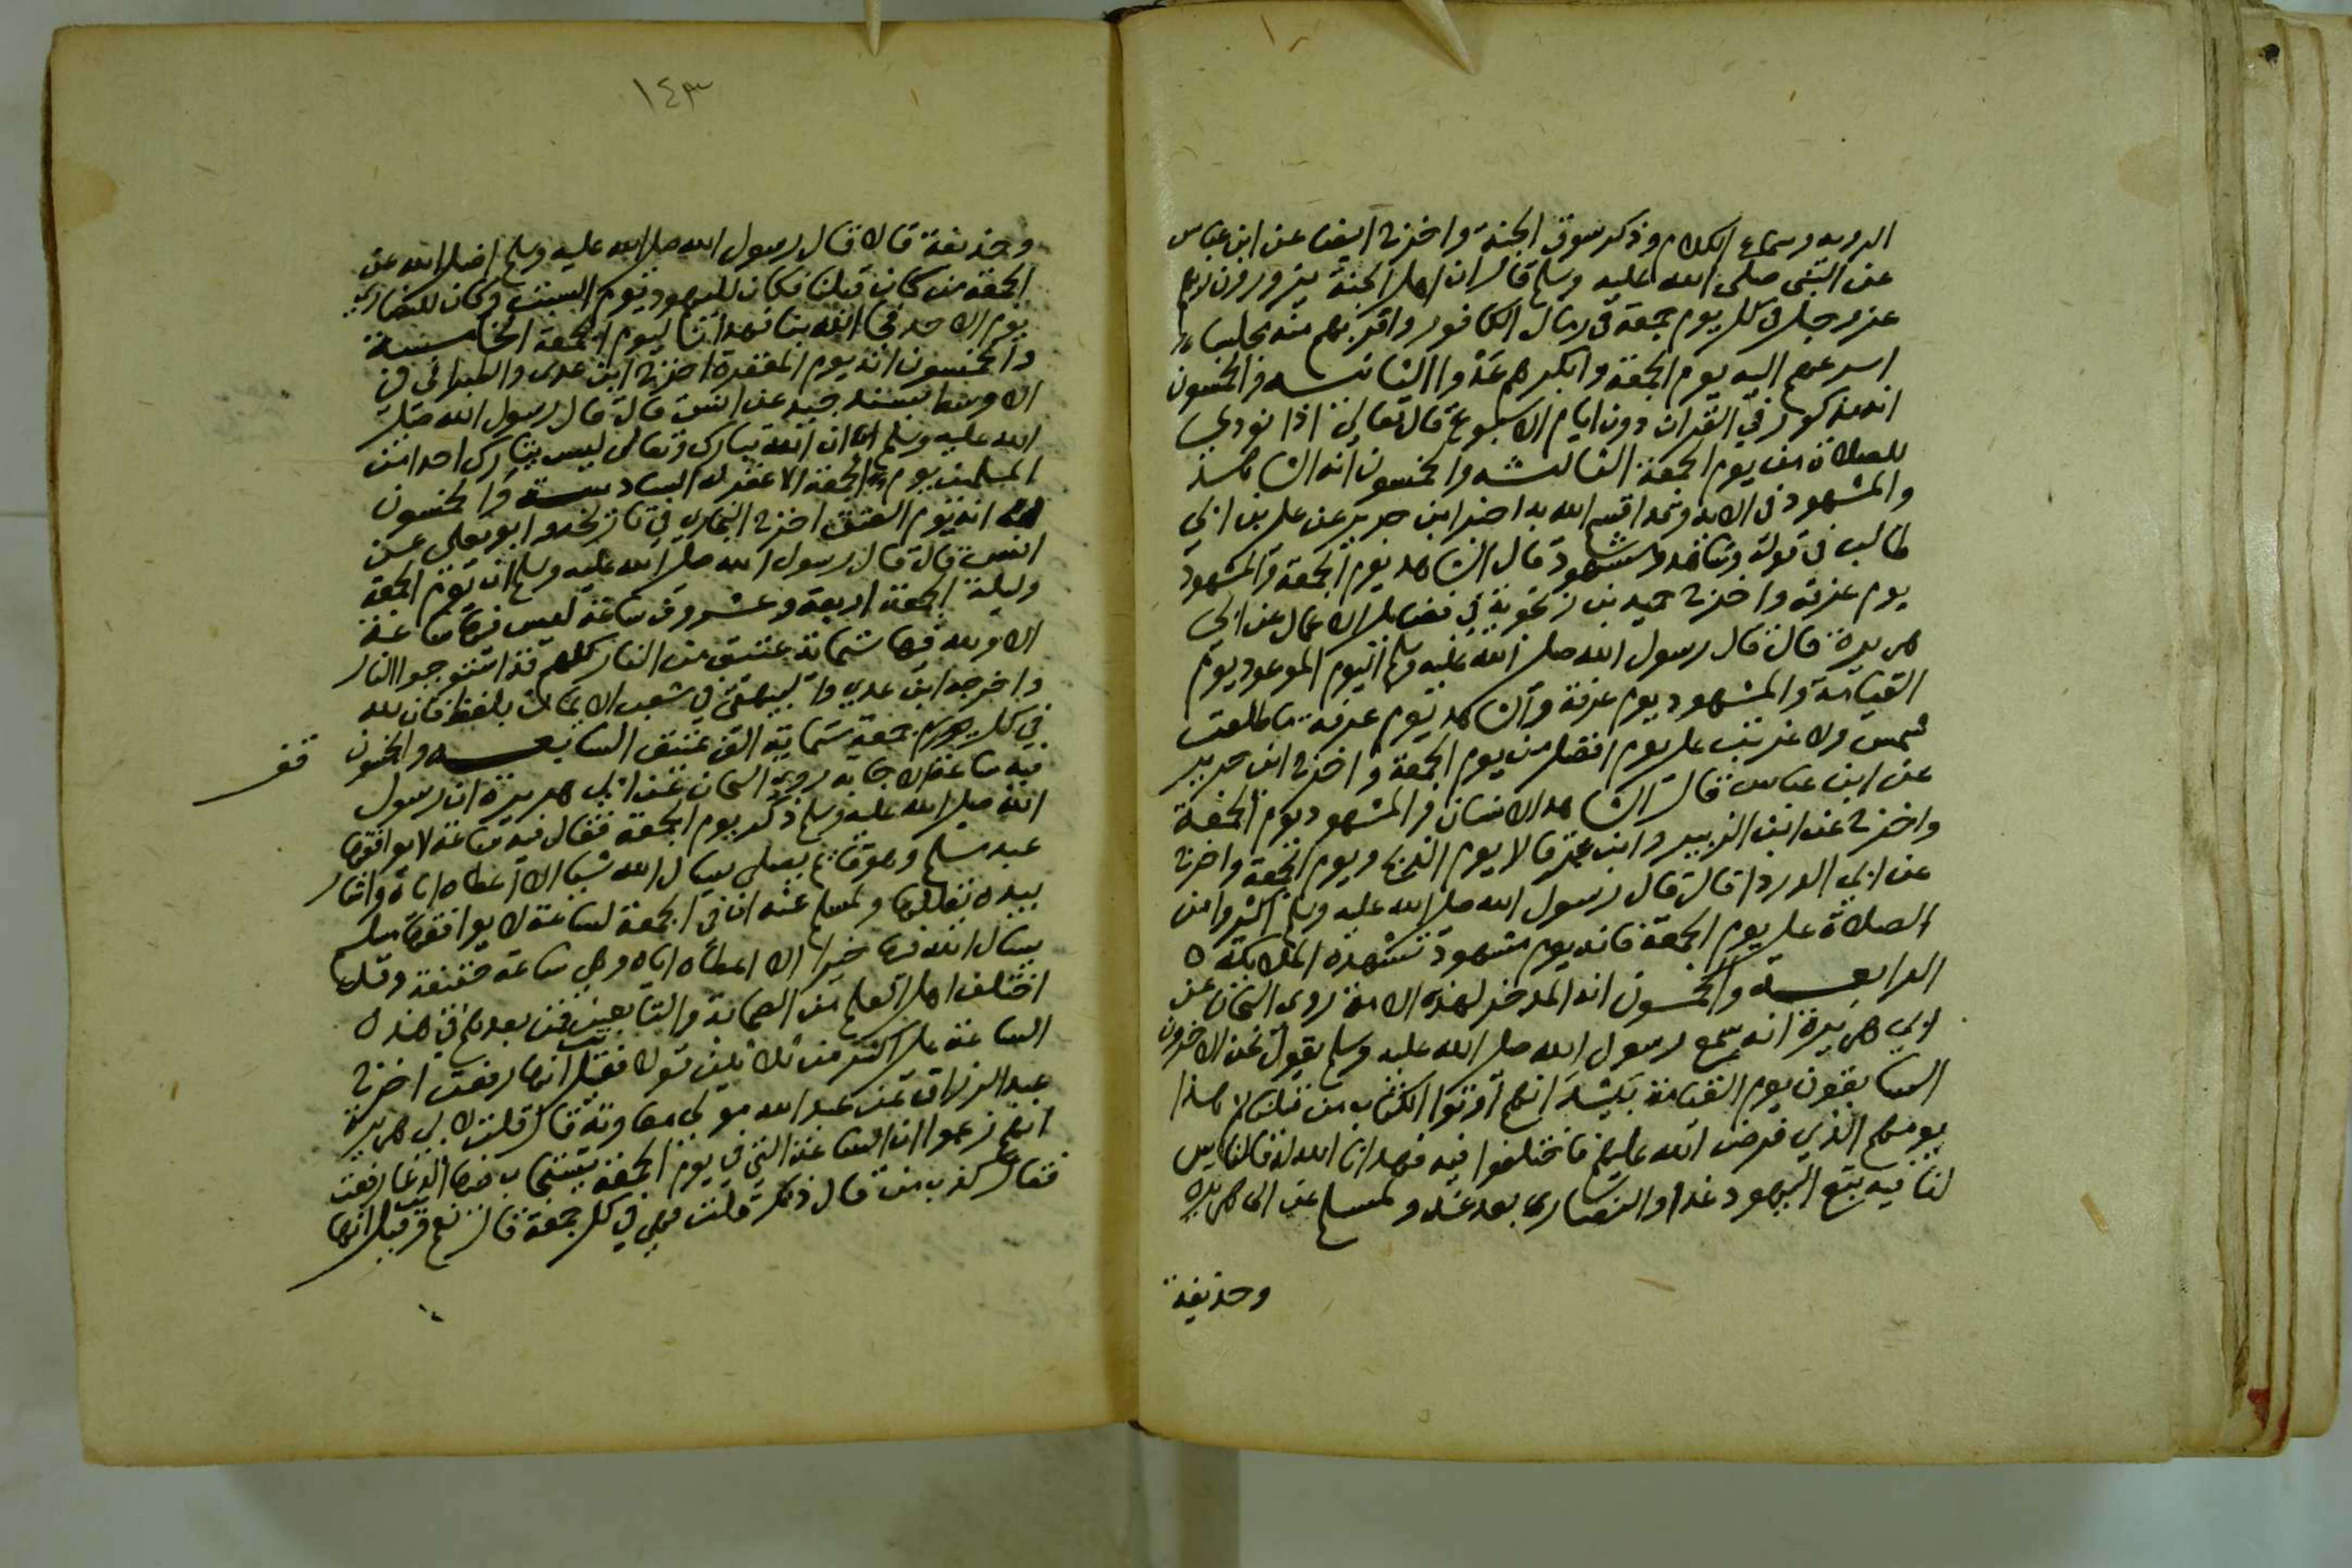 الرويه وسماع الكلام وذكر سوق الجنة واخرج ايضا عن ابن عباس
عن النبى صلى الله عليه وسلم قال ان اهل الجنة يزورون ربهم
عز وجل فى كل يوم جمعة فى رمال الكافور واقربهم منه مجلسا
اسرعهم اليه يوم الجمعة وابكرهم غدوا الثانيـه والخمسون
انه مذكور في القران دون ايام الاسبوع قال تعالى اذا نودي
للصلاة من يوم الجمعة الثالثـه والخمسون انه الشاهد
والمشهود فى الايه وقد اقسم الله به اخرج ابن جرير عن على بن ابي
طالب فى قوله وشاهد ومشهود قال الشاهد يوم الجمعة والمشهود
يوم عرفة واخرج حميد بن زنجويه في فضايل الاعمال عن ابي
هريرة قال قال رسول الله صلى الله عليه وسلم اليوم الموعود يوم
القيامة والمشهود يوم عرفة والشاهد يوم عرفة ما طلعت
شمس ولا غربت على يوم افضل من يوم الجمعة واخرج ابن جرير
عن ابن عباس قال الشاهد الانسان والمشهود يوم الجمعة
واخرج عن ابن الزبير وابن عمر قالا يوم الذبح ويوم الجمعة واخرج
عن ابي الدردا قال قال رسول الله صلى الله عليه وسلم اكثروا من
الصلاة على يوم الجمعة فانه يوم مشهود تشهده الملايكة
الرابعـة والخمسون انه المدخر لهذه الامة روى الشيخان عن
ابي هريرة انه سمع رسول الله صلى الله عليه وسلم يقول نحن الاخرون
السابقون يوم القيامة بيد انهم اوتوا الكتاب من قبلنا ثم هذا
يومهم الذي فرض الله عليهم فاختلفوا فيه فهدانا الله له فالناس
لنا فيه تبع اليهود غدا والنصارى بعد غد ولمسلم عن ابى هريرة
وحذيفة
١٤٣
وحذيفة قالا قال رسول الله صلى الله عليه وسلم اضل الله عن
الجمعة من كان قبلنا فكان لليهود يوم السبت وكان للنصارى
يوم الاحد فجا الله بنا فهدانا ليوم الجمعة الخامسـة
والخمسون انه يوم المغفرة اخرج ابن عدى والطبرانى فى
الاوسط بسند جيد عن انس قال قال رسول الله صلى
الله عليه وسلم ان الله تبارك وتعالى ليس بتارك احدا من
المسلمين يوم الجمعة الا غفر له السادسـة والخمسون
انه يوم العتق اخرج البخارى في تاريخه وابو يعلى عن
انس قال قال رسول الله صلى الله عليه وسلم ان يوم الجمعة
وليلة الجمعة اربعة وعشرون ساعة ليس فيها ساعة
الا ولله فيها ستماية عتيق من النار كلهم قد استوجبوا النار
واخرجه ابن عدي والبيهقي في شعب الايمان بلفظ فان لله
في كل جمعة ستماية الف عتيق السابعـه والخمسون
فيه ساعة الاجابه روى الشيخان عن ابى هريرة ان رسول
الله صلى الله عليه وسلم ذكر يوم الجمعة فقال فيه ساعة لا يوافقها
عبد مسلم وهو قايم يصلى يسال الله شيا الا اعطاه اياه واشار
بيده يقللها ولمسلم عنه ان في الجمعة لساعة لا يوافقها مسلم
يسال الله فيها خيرا الا اعطاه اياه وهى ساعة خفيفة وقد
اختلف اهل العلم من الصحابة والتابعين فمن بعدهم في هذه
الساعة على اكثر من ثلاثين قولا فقيل انها رفعت اخرج
عبد الرزاق عن عبد الله مولى معاوية قال قلت لابى هريرة
انهم زعموا ان الساعة التي في يوم الجمعة يستجاب فيها الدعا رفعت
فقال كذب من قال ذلك قلت فهى في كل جمعة قال نعم وقيل انها